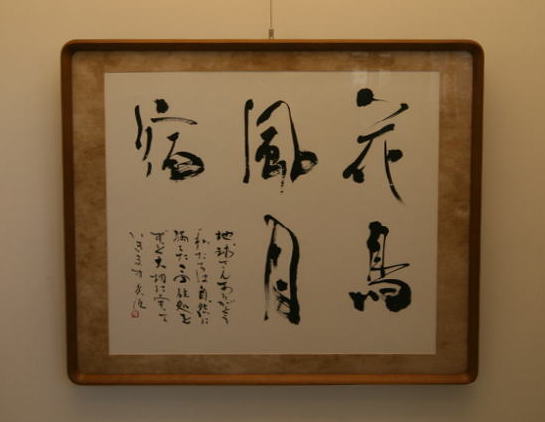 花鳥
風月
地球さんありがとう
私たちは自然に
満ちたこの住処を
ずっと大切に守って
いきます